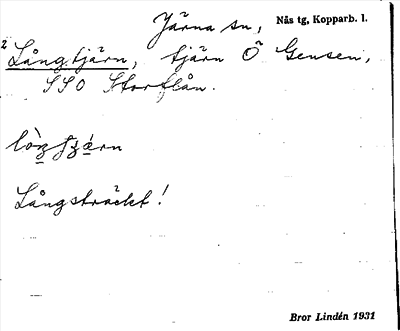 Järna sn, Näs tg, Kopparb. l.
2 Långtjärn, tjärn Ö Gensen,
SSO Storflån.
Långsträckt!
Bror Lindén 1931